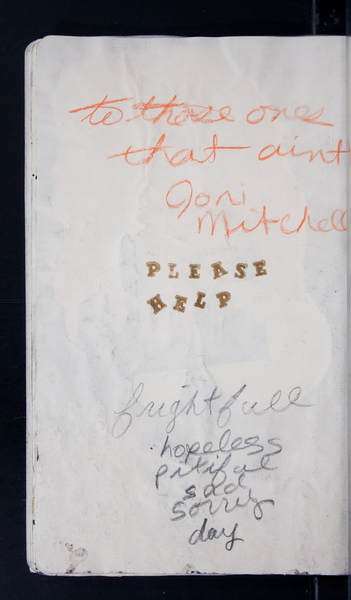 to those ones
that aint
Joni
Mitchell
PLEASE
HELP
frightfull
hopeless
pitiful
sad
sorry
day